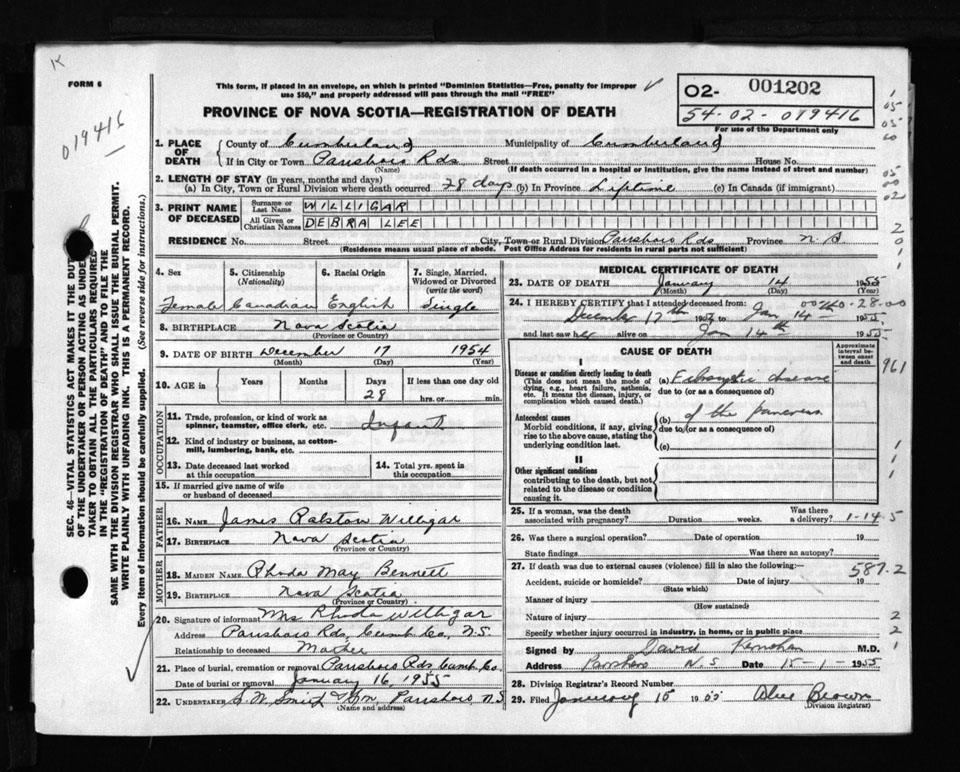 K
FORM 6
019416
This form, if placed in an envelope, on which is printed "Dominion Statistics—Free, penalty for improper
use $50," and properly addressed will pass through the mail "FREE"
PROVINCE OF NOVA SCOTIA—REGISTRATION OF DEATH
02- 001202
54-02-019416
For use of the Department only
1. PLACE OF DEATH
County of Cumberland Municipality of Cumberland
If in City or Town Parrsboro Rds Street House No.
(Name) (If death occurred in a hospital or institution, give the name instead of street and number)
2. LENGTH OF STAY (in years, months and days)
(a) In City, Town or Rural Division where death occurred 28 days (b) In Province Lifetime (c) In Canada (if immigrant)
3. PRINT NAME OF DECEASED
Surname or Last Name WILLIGAR
All Given or Christian Names DEBRA LEE
RESIDENCE No. Street City, Town or Rural Division Parrsboro Rds Province N.S.
(Residence means usual place of abode. Post Office Address for residents in rural parts not sufficient)
4. Sex 5. Citizenship (Nationality) 6. Racial Origin 7. Single, Married, Widowed or Divorced (write the word)
Female Canadian English Single
8. BIRTHPLACE Nova Scotia
(Province or Country)
9. DATE OF BIRTH December 17 1954
(Month) (Day) (Year)
10. AGE in Years Months Days If less than one day old
28 hrs. or min.
OCCUPATION
11. Trade, profession, or kind of work as
spinner, teamster, office clerk, etc. Infant
12. Kind of industry or business, as cotton-
mill, lumbering, bank, etc.
13. Date deceased last worked
at this occupation
14. Total yrs. spent in
this occupation
15. If married give name of wife
or husband of deceased
FATHER
16. NAME James Ralston Willigar
17. BIRTHPLACE Nova Scotia
(Province or Country)
MOTHER
18. MAIDEN NAME Rhoda May Bennett
19. BIRTHPLACE Nova Scotia
(Province or Country)
20. Signature of informant Mrs Rhoda Willigar
Address Parrsboro Rds, Cumb Co, N.S.
Relationship to deceased Mother
21. Place of burial, cremation or removal Parrsboro Rds Cumb. Co.
Date of burial or removal January 16, 1955
22. UNDERTAKER Smith & Son, Parrsboro, N.S
(Name and address)
MEDICAL CERTIFICATE OF DEATH
23. DATE OF DEATH January 14 1955
(Month) (Day) (Year)
24. I HEREBY CERTIFY that I attended deceased from:
December 17th to Jan 14th 1955
and last saw her alive on Jan 14th 1955
CAUSE OF DEATH
Approximate interval between onset and death
I
Disease or condition directly leading to death
(This does not mean the mode of
dying, e.g., heart failure, asthenia,
etc. It means the disease, injury, or
complication which caused death.)
(a) Fibrocystic disease
due to (or as a consequence of)
Antecedent causes
Morbid conditions, if any, giving
rise to the above cause, stating the
underlying condition last.
(b) of the pancreas
due to (or as a consequence of)
(c)
II
Other significant conditions
contributing to the death, but not
related to the disease or condition
causing it.
961
25. If a woman, was the death
associated with pregnancy? Duration weeks. Was there
a delivery? 1-14-5
26. Was there a surgical operation? Date of operation 19
State findings Was there an autopsy?
27. If death was due to external causes (violence) fill in also the following:— 587.2
Accident, suicide or homicide? Date of injury 19
(State which)
Manner of injury
(How sustained)
Nature of injury
Specify whether injury occurred in industry, in home, or in public place
Signed by David M.D.
Address Parrsboro N.S Date 15-1-1955
28. Division Registrar's Record Number
29. Filed January 15 1955 Olive Brown
(Division Registrar)
SEC. 46—VITAL STATISTICS ACT MAKES IT THE DUTY
OF THE UNDERTAKER OR PERSON ACTING AS UNDER-
TAKER TO OBTAIN ALL THE PARTICULARS REQUIRED
IN THE "REGISTRATION OF DEATH" AND TO FILE THE
SAME WITH THE DIVISION REGISTRAR WHO SHALL ISSUE THE BURIAL PERMIT.
WRITE PLAINLY WITH UNFADING INK. THIS IS A PERMANENT RECORD.
Every item of information should be carefully supplied. (See reverse side for instructions.)